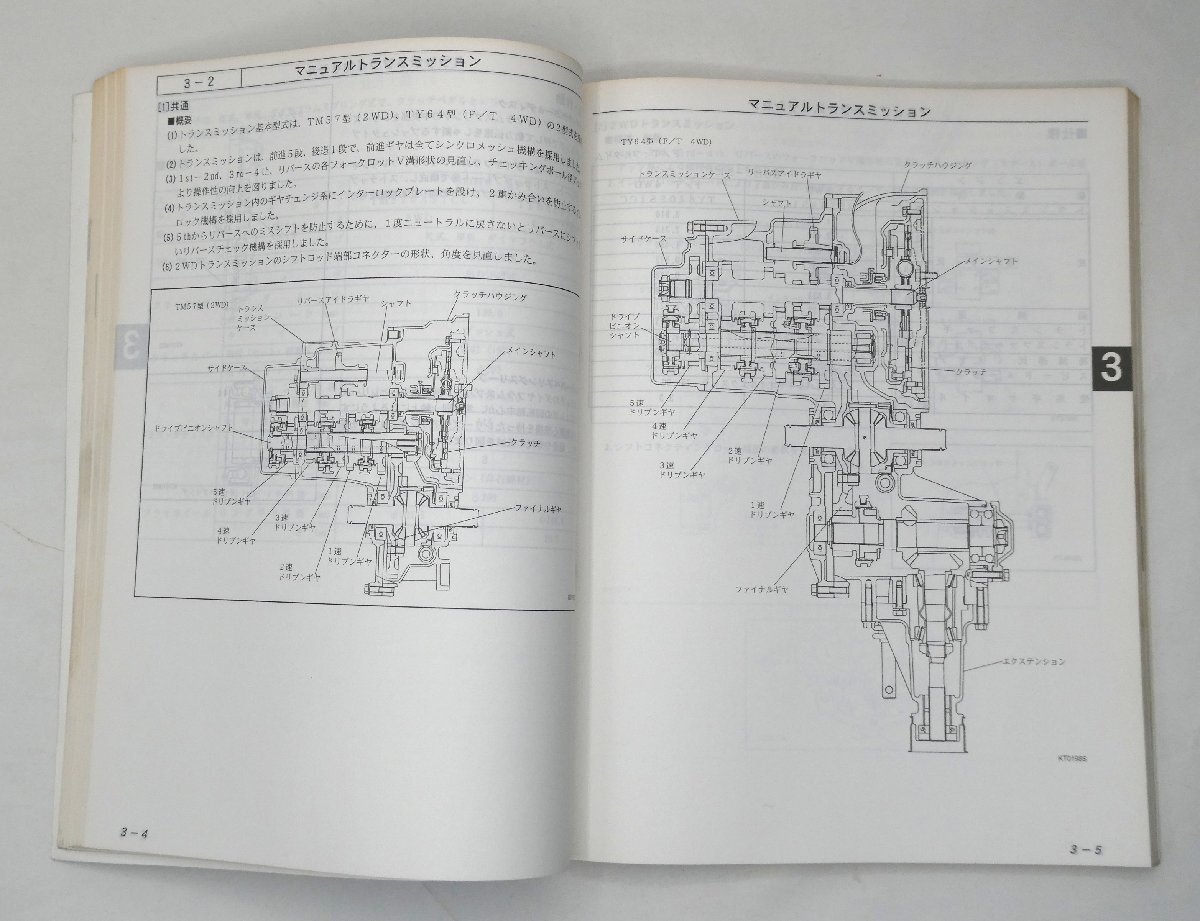 3－2
マニュアルトランスミッション
[1]共通
■概要
(1)トランスミッション基本型式は、TM57型(2WD)、TY64型(F/T 4WD)の2形式を
した。
(2)トランスミッションは、前進5段、後退1段で、前進ギヤは全てシンクロメッシュ機構を採用しました
(3)1st－2nd、3rd－4th、リバースの各フォークロッドV溝形状の見直し、チェッキングボール
より操作性の向上を図りました。
(4)トランスミッション内のギヤチェンジ系にインターロックプレートを設け、2重かみ合いを防止する
ロック機構を採用しました。
(5)5thからリバースへのミスシフトを防止するために、1度ニュートラルに戻さないとリバースにシフ
いリバースチェック機構を採用しました。
(6)2WDトランスミッションのシフトロッド端部コネクターの形状、角度を見直しました。
TM57型(2WD)
トランス
ミッション
ケース
リバースアイドラギヤ
シャフト
クラッチハウジング
メインシャフト
サイドケース
ドライブピニオンシャフト
クラッチ
5速
ドリブンギヤ
4速
ドリブンギヤ
3速
ドリブンギヤ
2速
ドリブンギヤ
1速
ドリブンギヤ
ファイナルギヤ
3－4
マニュアルトランスミッション
TY64型(F/T 4WD)
トランスミッションケース
リバースアイドラギヤ
シャフト
クラッチハウジング
サイドケース
メインシャフト
ドライブ
ピニオン
シャフト
クラッチ
5速
ドリブンギヤ
4速
ドリブンギヤ
3速
ドリブンギヤ
2速
ドリブンギヤ
1速
ドリブンギヤ
ファイナルギヤ
エクステンション
KT01985
3
3－5